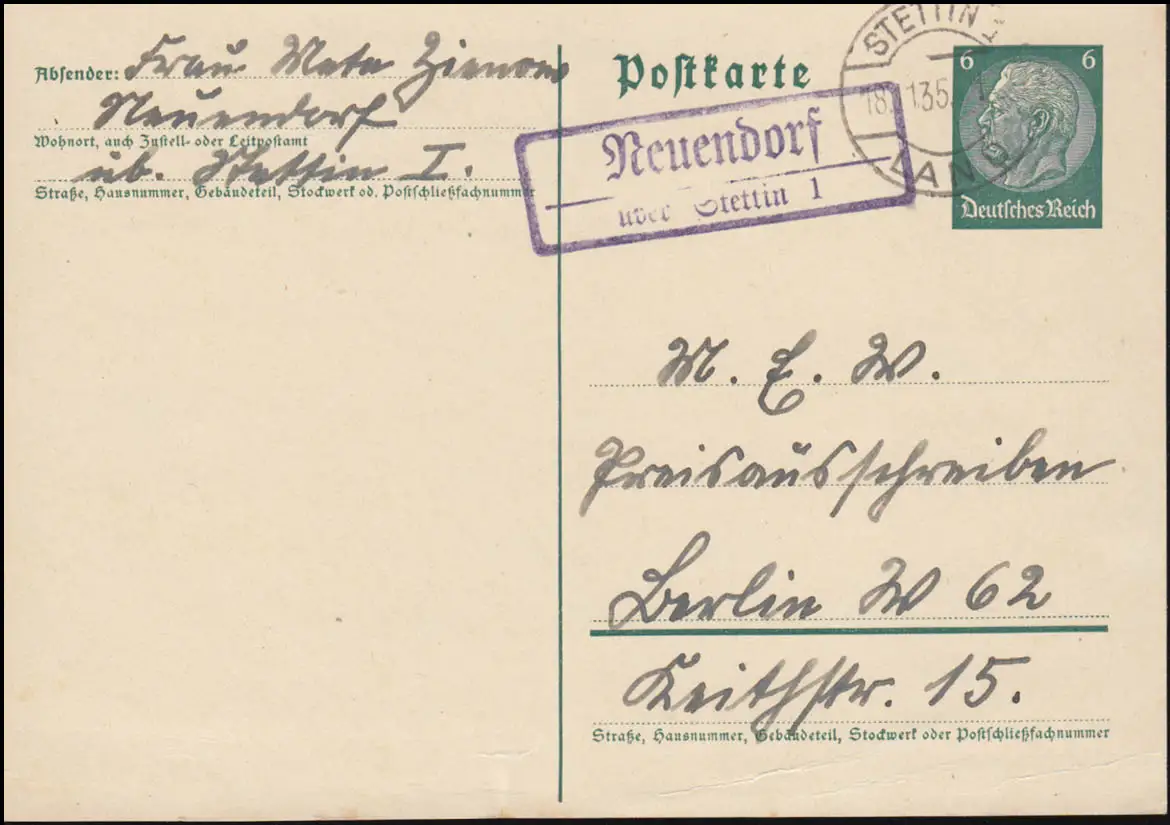 Absender: Frau Meta
Neuendorf
Wohnort, auch Zustell- oder Leitpostamt
üb. Stettin I.
Straße, Hausnummer, Gebäudeteil, Stockwerk od. Postschließfachnummer
Postkarte
Neuendorf
über Stettin 1
STETTIN
18. 1 35.
LAND
6 6
Deutsches Reich
M. E. W.
Preisausschreiben
Berlin W 62
Keithstr. 15.
Straße, Hausnummer, Gebäudeteil, Stockwerk oder Postschließfachnummer